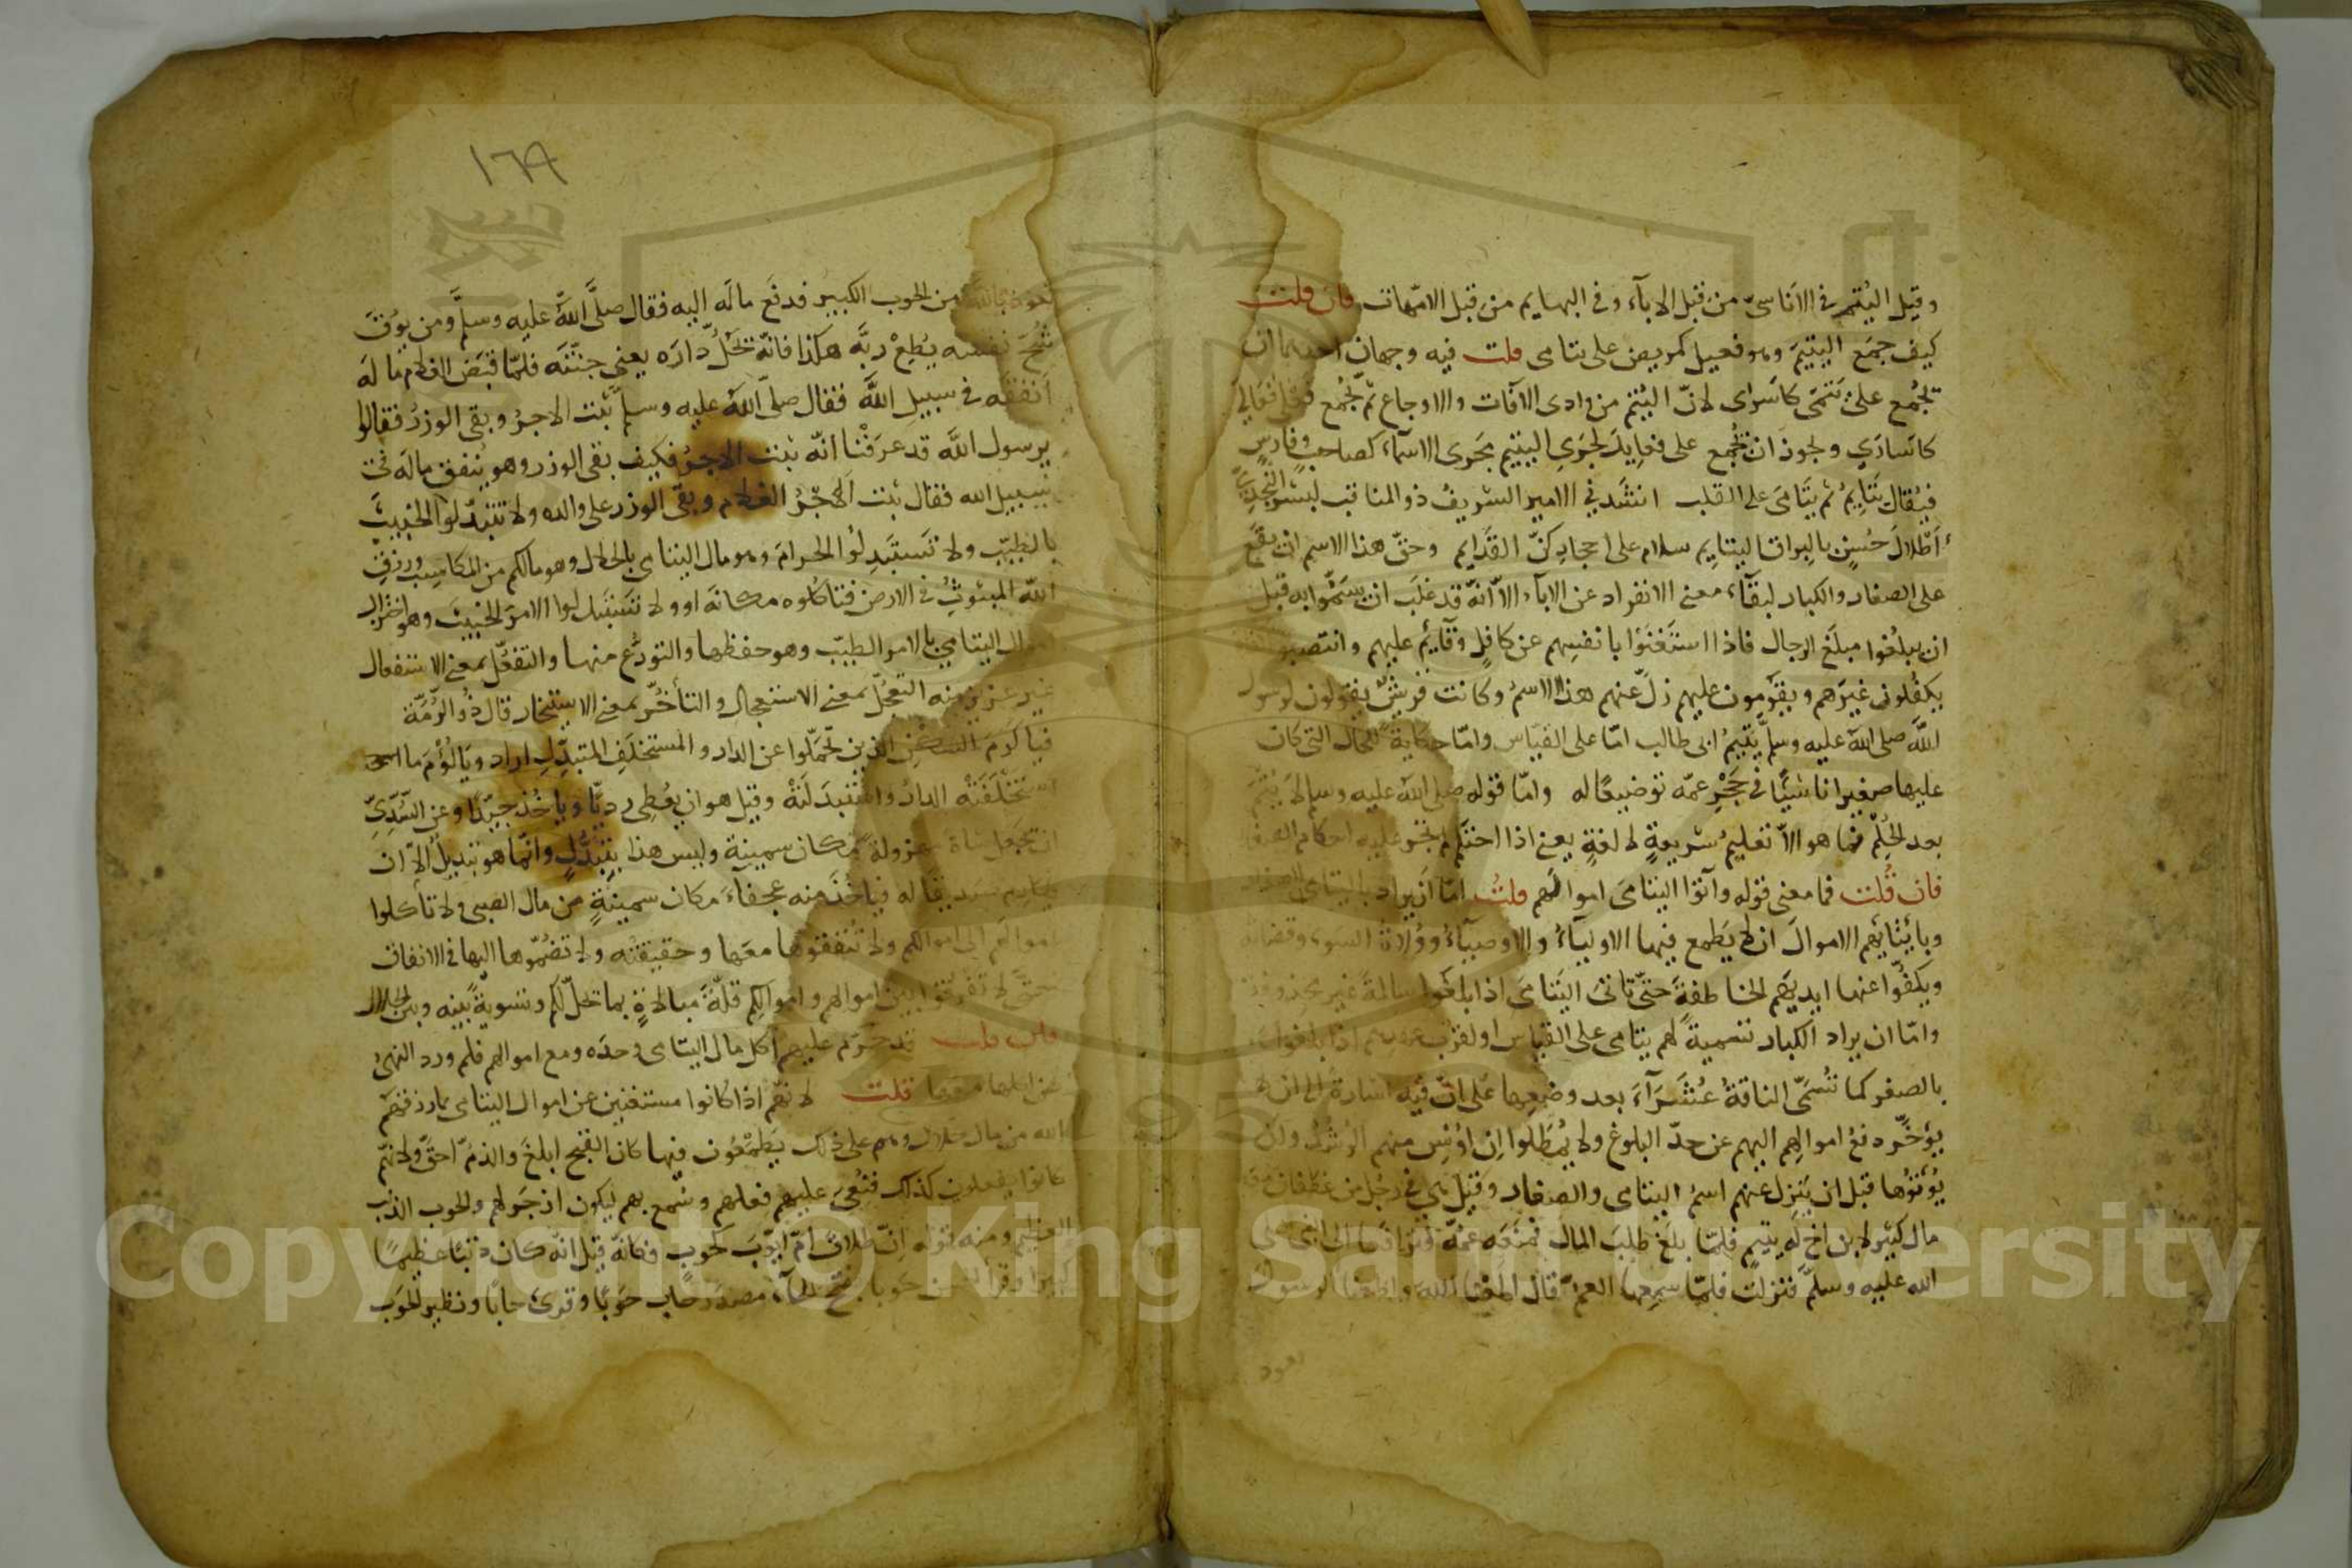 وقيل اليُتم في الاَناسىّ من قبل الاٰبآء وفى البهايم من قبل الامّهات فان قلت
كيف جمع اليتيمَ وهو فعيل كمريض على يتامى قلت فيه وجهان احدهما ان
تُجْمع على يَتْمَى كاَسْرٰى لانّ اليُتم من وادى الآفات والاوجاع ثم يُجْمع فعلى فَعَالىٰ
كاَسارَي ويجوز ان يُجْمع على فعايِل لجَرْي اليتيم مَجرى الاسمآء كصاحب وفارس
فيُقال يَتَايِمُ ثم يَتَامَى على القلب انشدني الامير الشريفُ ذو المناقب لبشر النَّجْديّ
أَطْلالَ حُسْنٍ بالبِراق اليتايِم سلام على احجاركنّ القَدَايم وحقّ هذا الاسم ان يقعَ
على الصغار والكبار لبقآء معنى الانفراد عن الاٰبآء الاّ انّه قد غلَب ان يُسَمّوا به قبل
ان يبلُغوا مبلغ الرجال فاذا استَغْنَوْا بانفسِهم عن كافلٍ وقآيم عليهم وانتصبوا
يكفُلون غيرَهم ويقومون عليهم زلّ عنهم هذا الاسمُ وكانت قريشٌ يقولون لرسول
الله صلى الله عليه وسلم يَتيمُ ابى طالب امّا على القياس وامّا حكاية للحال التى كان
عليها صغيرا ناشئًا فى حَجْرِ عمّه توضيعًا له وامّا قوله صلى الله عليه وسلم لا يُتْمَ
بعد الحُلُم فما هو الاّ تعليمُ شريعةٍ لا لغةٍ يعنى اذا احتلم لم تجر عليه احكام الصغار
فان قُلت فما معنى قوله وآتوا اليتامَى اموالهم قلتُ امّا اَن يراد باليتامى الصغار
وبايتايهم الاموالَ ان لا يَطمع فيها الاوليآءُ والاوصيآءُ ووُلاةُ السوء وقضاته
ويكفّوا عنها ايديَهم الخاطفةَ حتّى تاتىَ اليَتامَى اذا بلغوا سالمةً غير محذوفة
وامّا ان يراد الكبار تسميةً لهم يتامى على القياس او لقرب عهدهم اذا بلغوا
بالصغر كما تُسمّى الناقةُ عُشَرَآءَ بعد وضعها على انّ فيه اشارة الى ان لا
يؤخَّر دفعُ اموالِهم اليهم عن حدّ البلوغ ولا يُمْطَلوا اِن اوُنِس منهم الرُشْدُ وان
يُؤتَوْها قبل ان يَزِلّ عنهم اسمُ اليتامى والصغار وقيل هى فى رجُل من غطفان معه
مال كثير لابن اخ لَه يتيمٍ فلمّا بلغ طلبَ المال فمنَعَه عمُّه فترافعا الى النبي صلى
الله عليه وسلم فنزلت فلمّا سمِعها العمّ قال اطعنا اللهَ واطعنا الرسول
نعوذ
١٦٩
نعوذ بالله من الحوب الكبير فدفَع مالَه اليه فقال صلَّى اللهُ عليه وسلم ومن يُوقَ
شُحَّ نفسه ويُطِعْ ربَّه هكذا فانّه يَحُلُّ دارَه يعنى جنّتَه فلمّا قبَض الغلام مالَه
اَنفَقه فى سبيل اللهِ فقال صلّى اللهُ عليه وسلم ثبت الاجرُ وبقى الوِزرُ فقالوا
يرسول الله قد عرَفْنا انّه ثبت الاجرُ فكيف بقى الوزر وهو يُنفق مالَه فى
سبيل الله فقال ثبت اَلاجْرُ الغلام وبقى الوزر على والده ولا تتبدّلوا الخبيثَ
بالطيّب ولا تَستَبدِلُوا الحرامَ وهو مال اليتامى بالحلال وهو مالكم من المكاسِب ورزق
اللهِ المبثوثِ فى الارض فتاكلوه مكانَه او ولا تستبدلوا الامرَ الخبيثَ وهو اختزال
اموال اليتامى بالامر الطيّب وهو حفظها والتورّع منها والتفعّل بمعنى الاستفعال
غير عزيز منه التعجّل بمعنى الاستعجال والتأخّر بمعنى الاستيخار قال ذُو الرُّمّة
فيا كَرَمَ السَّكْنِ الذين تحمّلوا عن الدار والمستخلَفِ المتبدّلِ اراد ويَا لُؤْمَ ما
استَخْلَفَتْه الدارُ واسْتَبدَلَتْهُ وقيل هو ان يُعْطِى رديًّا وياخُذ جيّدًا وعن السُّدّىّ
ان تجعل شاة مهزولة مكان سمينة وليس هذا بتبَدُّلٍ وانّما هو تبديلٌ الاّ ان
يكارِم صديقا له فياخُذ منه عجفاءَ مكان سمينةٍ من مال الصبى ولا تأكلوا
اموالَهم الى اموالكم ولا تُنفقوها معَها وحقيقتُه ولا تضُمّوها اليها فى الانفاق
حتّى لا تُفَرّقوا بين اموالهم واموالكم قلّةَ مبالاةٍ بما لا يحلّ لكم وتسويةً بينه وبين الحلال
فان قلت قد حرّم عليهم اكل مال اليتامى وحدَه ومع اموالهم فلم ورد النهىُ
عن اكلها معها قلت لانّهم اذا كانوا مستغنين عن اموال اليتامى بما رزقهم
الله من مال حلال وهم على ذلك يَطمَعون فيها كان القبح ابلغَ والذمّ احقّ ولانّهم
كانوا يفعلون كذلك فنُعِىَ عليهم فعلهم وسُمّع بهم ليكون ازجَر لهم والحوب الذنب
العظيم ومنه قوله اِنّ طلاق امّ ايّوبَ لَحُوب فكانّه قيل انّه كان ذنبًا عظيما
كبيرا وقرأ الحسن حَوبا بفتح الحآء مصدر حاب حَوبًا وقرئ حابًا ونظير الحَوب